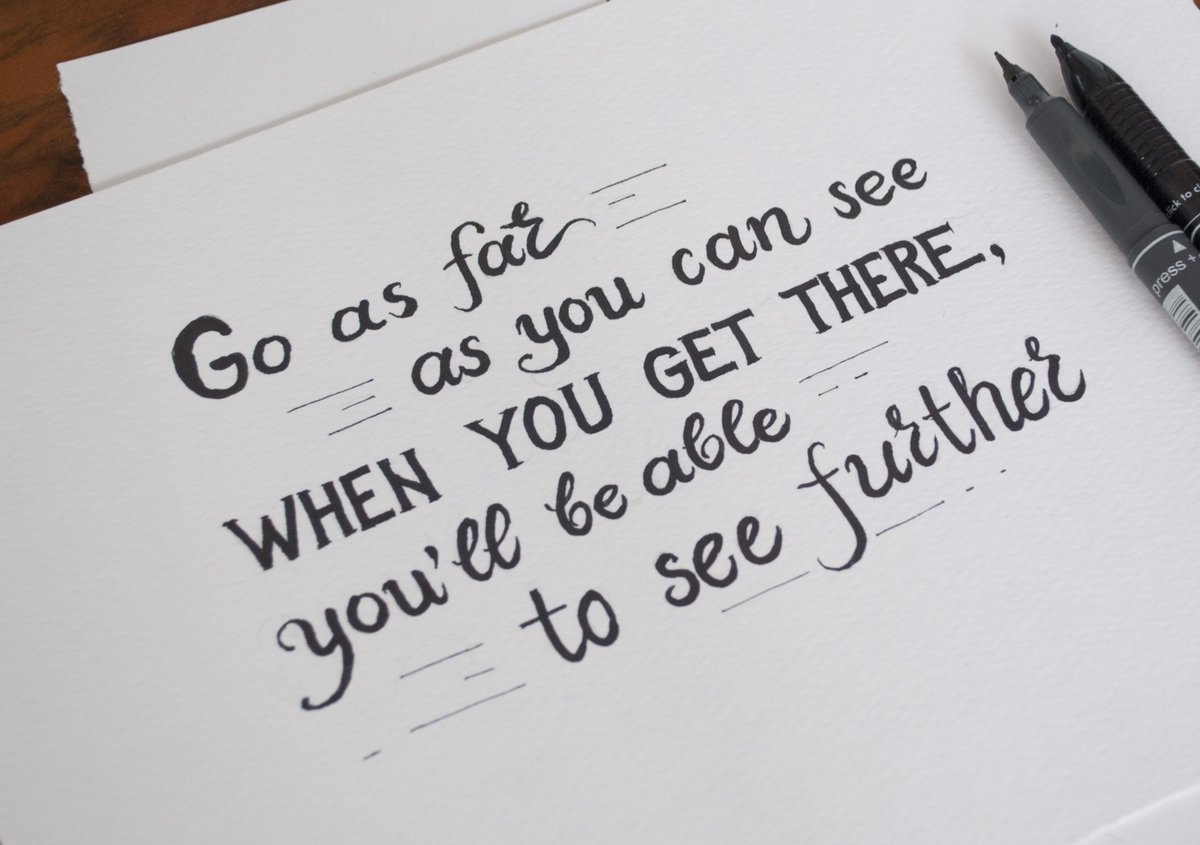 Go as far
as you can see
WHEN YOU GET THERE,
you'll be able
to see further
press +